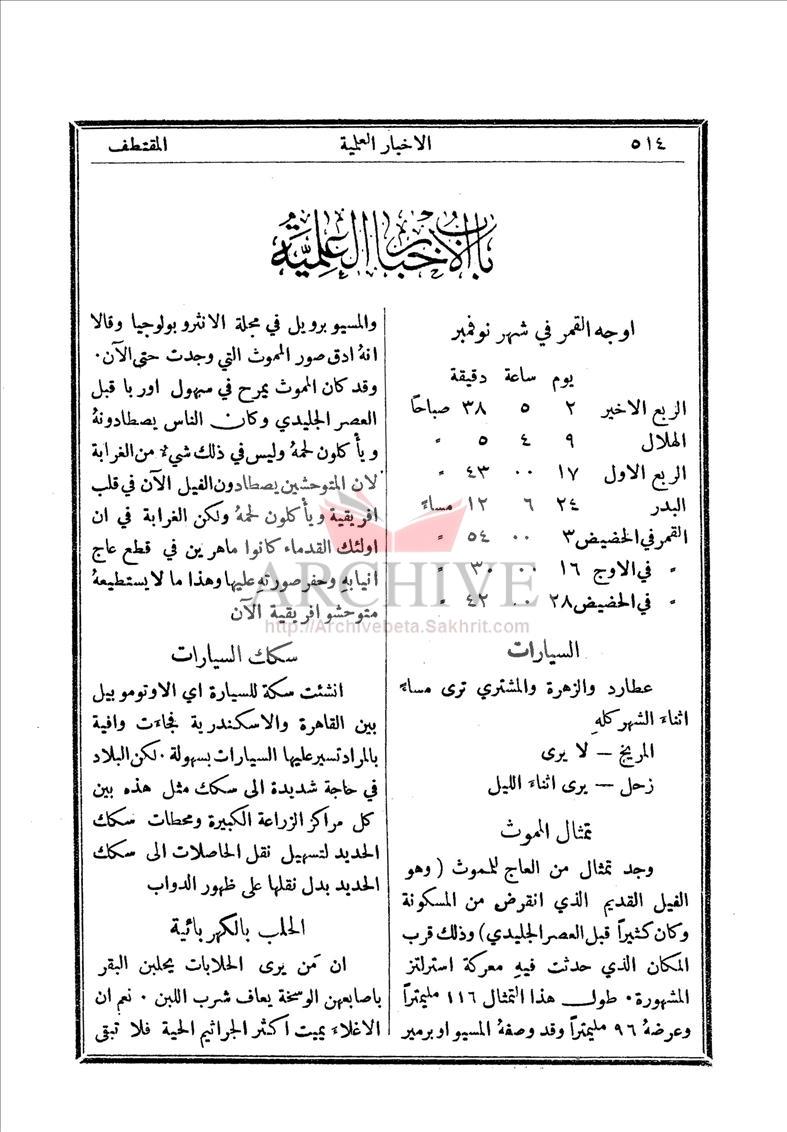 ٥١٤ الاخبار العلمية المقتطف
باب الاخبار العلمية
اوجه القمر في شهر نوفمبر
يوم ساعة دقيقة
الربع الاخير ٢ ٥ ٣٨ صباحًا
الهلال ٩ ٤ ٥ "
الربع الاول ١٧ ٠٠ ٤٣ "
البدر ٢٤ ٦ ١٢ مساءً
القمر في الحضيض ٣ ٠٠ ٥٤ "
" في الاوج ١٦ ٠٠ ٣٠ "
" في الحضيض ٢٨ ٠٠ ٤٢ "
السيارات
عطارد والزهرة والمشتري ترى مساءً
اثناءَ الشهر كلهِ
المريخ — لا يرى
زحل — يرى اثناءَ الليل
تمثال الموث
وجد تمثال من العاج للموث ( وهو
الفيل القديم الذي انقرض من المسكونة
وكان كثيراً قبل العصر الجليدي) وذلك قرب
المكان الذي حدثت فيهِ معركة استرلتز
المشهورة٠ طول هذا التمثال ١١٦ مليمتراً
وعرضهُ ٩٦ مليمتراً وقد وصفهُ المسيو اوبرمير
والمسيو برويل في مجلة الانثروبولوجيا وقالا
انهُ ادق صور الموث التي وجدت حتى الآن٠
وقد كان الموث يمرح في سهول اوربا قبل
العصر الجليدي وكان الناس يصطادونهُ
ويأكلون لحمهُ وليس في ذلك شيءٌ من الغرابة
لان المتوحشين يصطادون الفيل الآن في قلب
افريقية ويأكلون لحمهُ ولكن الغرابة في ان
اولئك القدماء كانوا ماهرين في قطع عاج
انيابهِ وحفر صورتهِ عليها وهذا ما لا يستطيعهُ
متوحشو افريقية الآن
سكك السيارات
انشئت سكة للسيارة اي الاوتوموبيل
بين القاهرة والاسكندرية فجاءَت وافية
بالمراد تسير عليها السيارات بسهولة ٠ لكن البلاد
في حاجة شديدة الى سكك مثل هذه بين
كل مراكز الزراعة الكبيرة ومحطات سكك
الحديد لتسهيل نقل الحاصلات الى سكك
الحديد بدل نقلها على ظهور الدواب
الحلب بالكهربائية
ان مَن يرى الحلابات يحلبن البقر
باصابعهن الوسخة يعاف شرب اللبن ٠ نعم ان
الاغلاءَ يميت اكثر الجراثيم الحية فلا تبقى
ARCHIVE
http://Archivebeta.Sakhrit.com